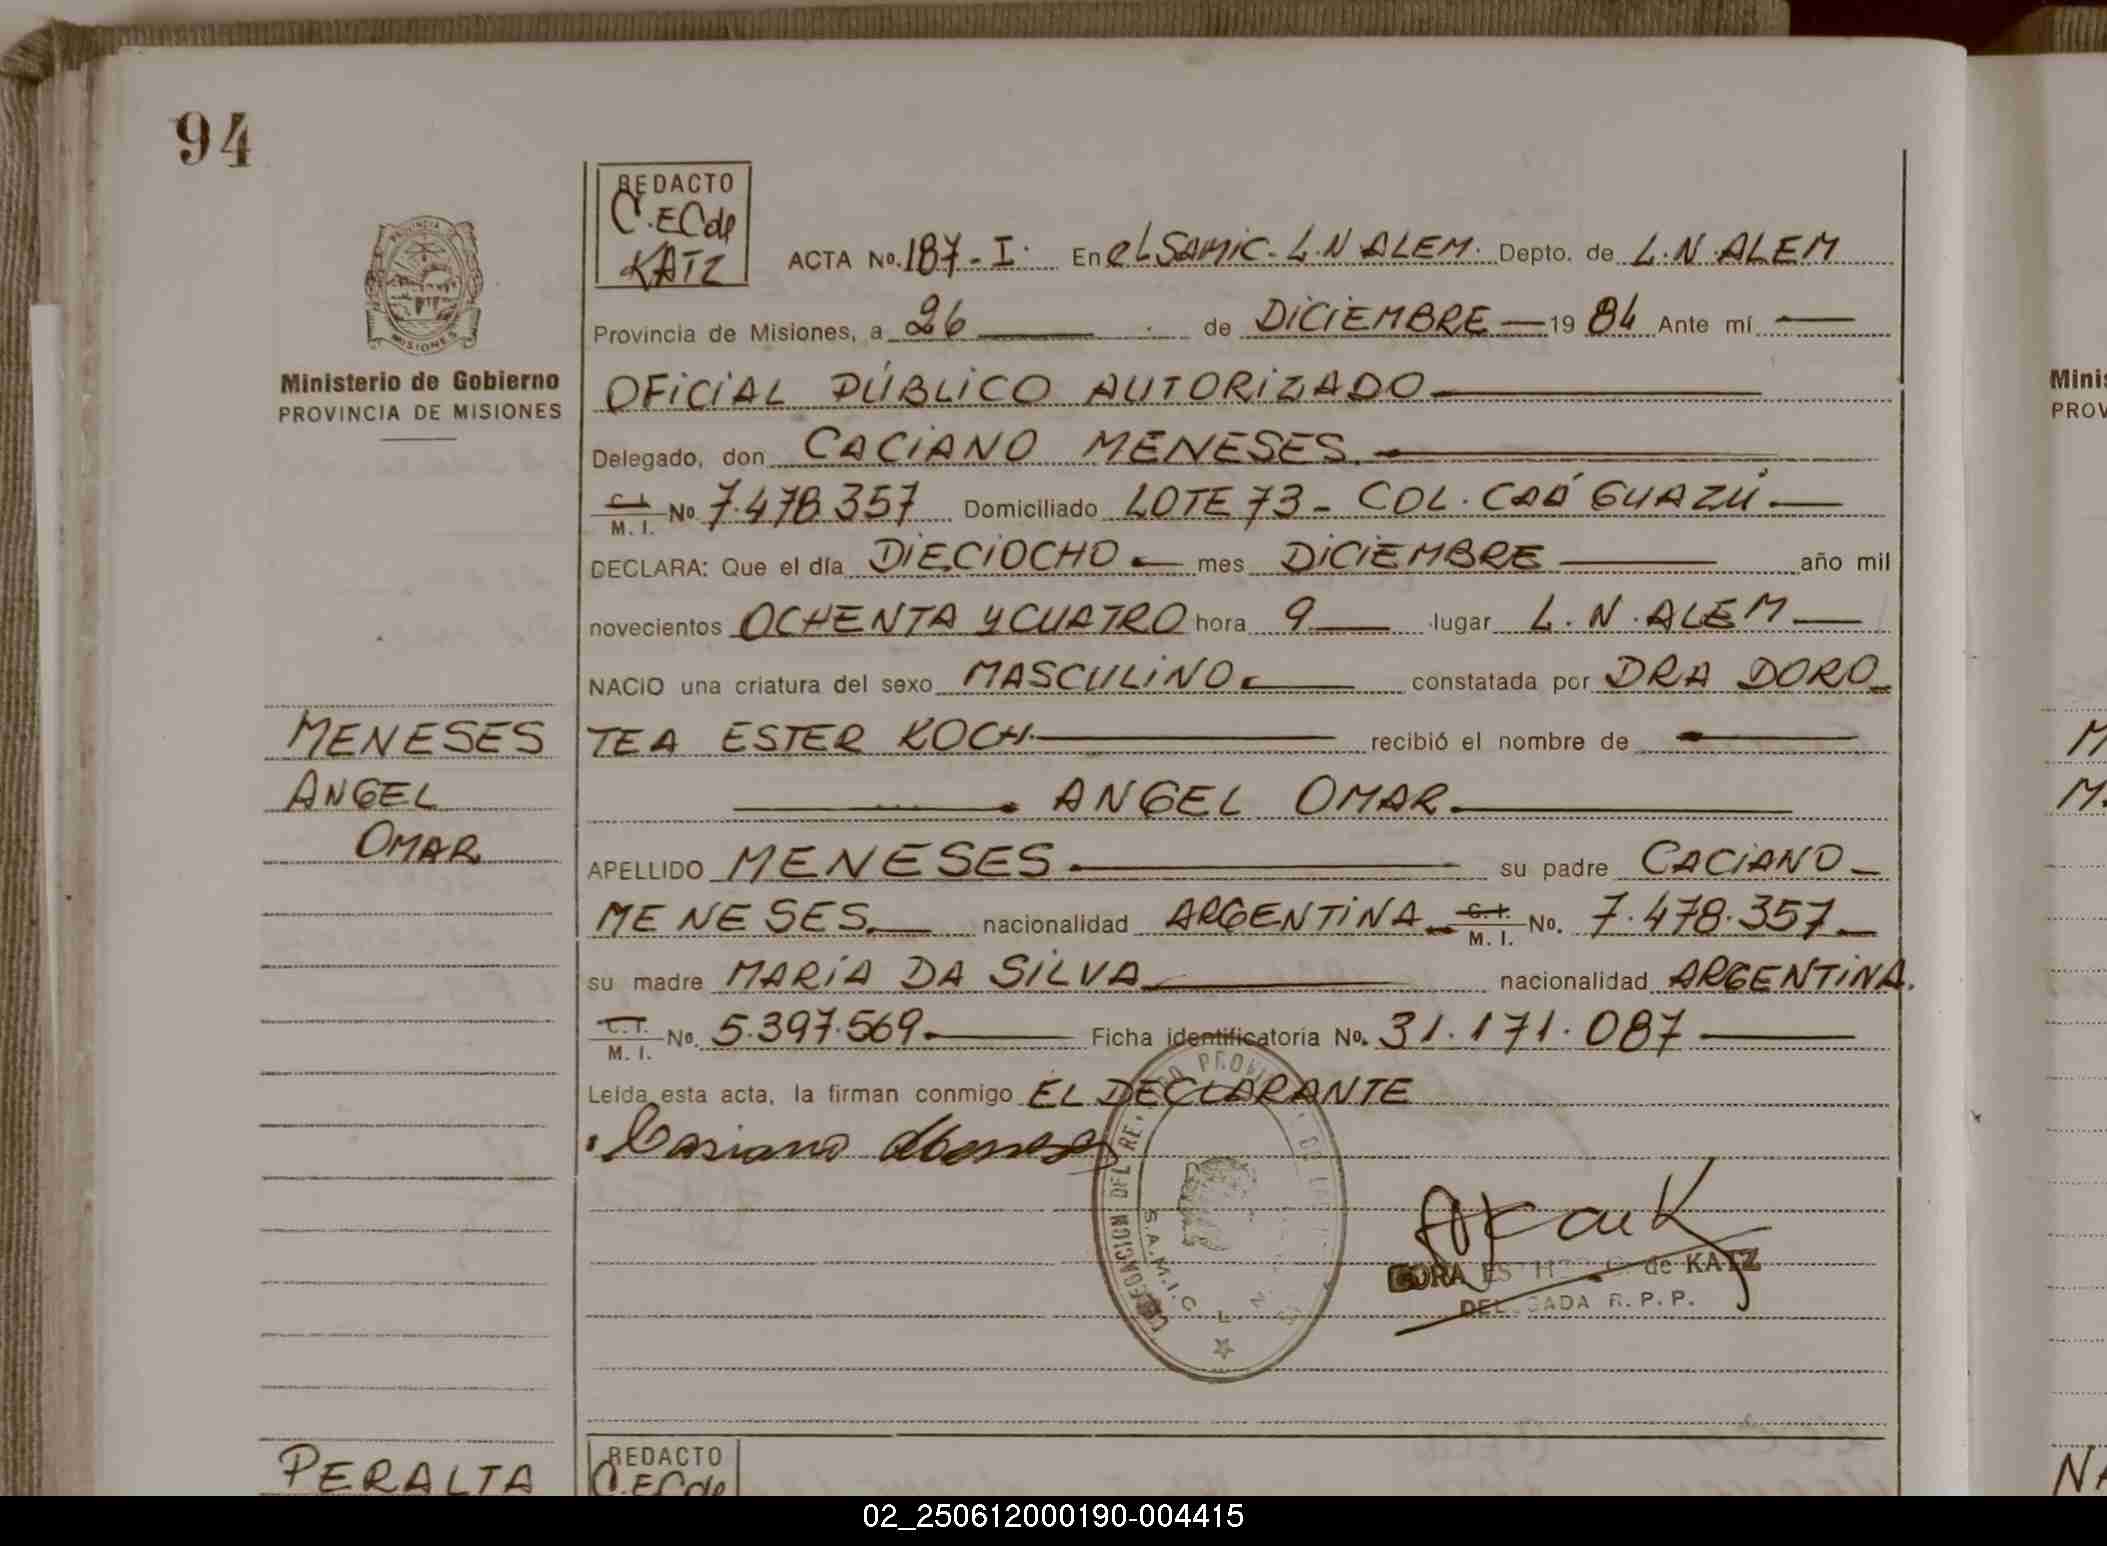 94
PROVINCIA
MISIONES
Ministerio de Gobierno
PROVINCIA DE MISIONES
REDACTO
C.EC de
KATZ
ACTA No. 187-I. En el SAMIC - L.N ALEM. Depto. de L.N.ALEM
Provincia de Misiones, a 26 — de DICIEMBRE — 19 84 Ante mí —
OFICIAL PÚBLICO AUTORIZADO —
Delegado, don CACIANO MENESES. —
C.I. M. I. No 7.478.357 Domiciliado LOTE 73 - COL. CAÁ GUAZÚ —
DECLARA: Que el día DIECIOCHO — mes DICIEMBRE — año mil
novecientos OCHENTA Y CUATRO hora 9 — lugar L.N.ALEM —
NACIO una criatura del sexo MASCULINO — constatada por DRA DORO_
TEA ESTER KOCH — recibió el nombre de —
— ANGEL OMAR. —
APELLIDO MENESES — su padre CACIANO —
MENESES. — nacionalidad ARGENTINA. C.I. M. I. No. 7.478.357 —
su madre MARÍA DA SILVA — nacionalidad ARGENTINA.
C.I. M. I. No. 5.397.569 — Ficha identificatoria No. 31.171.087 —
Leída esta acta, la firman conmigo EL DECLARANTE
MENESES
ANGEL
OMAR
Casiano Meneses
S.A.M.I.C. L.
DORA ES de KATZ
DELEGADA R.P.P.
PERALTA
REDACTO
C.EC de
Minis
PROV
M
M.
NA
02_250612000190-004415